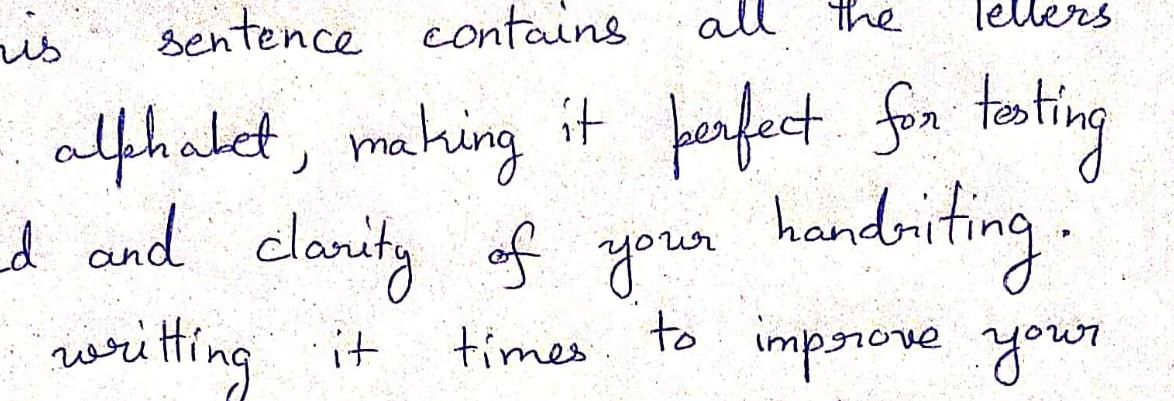 is sentence contains all the letters
alphabet, making it perfect for testing
d and clarity of your handriting.
writting it times to improve your